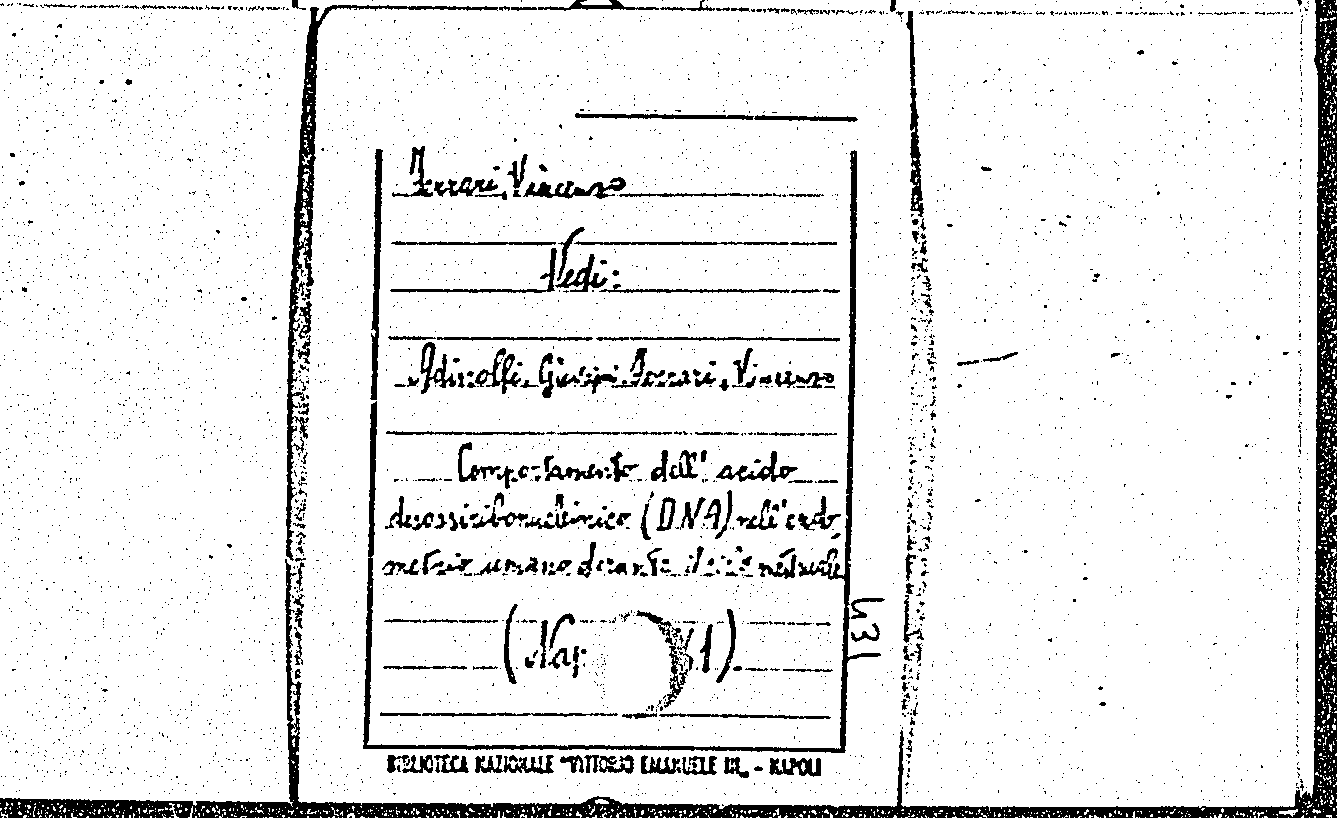 Ferrari, Vincenzo
Vedi:
Adinolfi, Giusepp. Ferrari, Vincenzo
Comportamento dell' acido
desossiribonucleinico (DNA) nell'endo,
metrio umano durante il ciclo mestruale
(Nap 1).
431
BIBLIOTECA NAZIONALE "VITTORIO EMANUELE III„ - NAPOLI